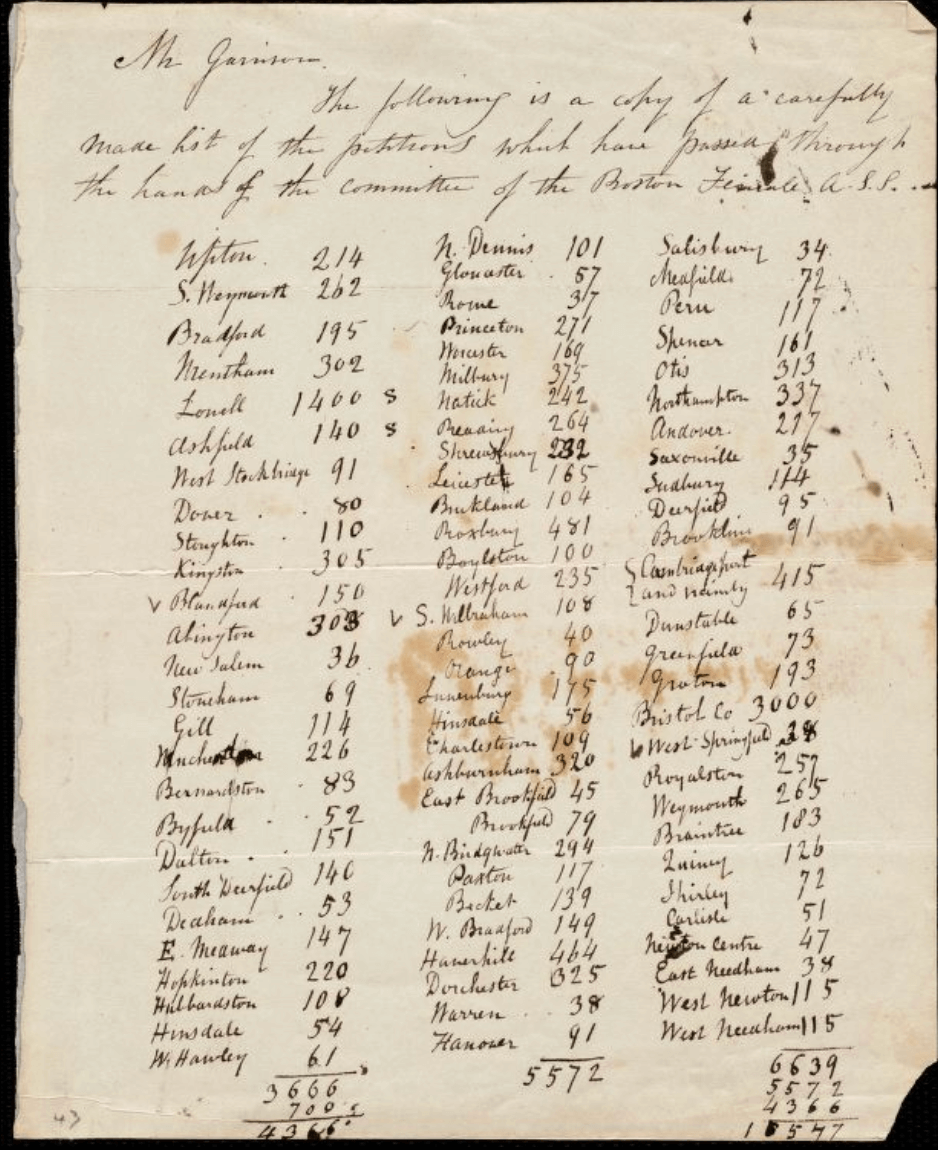 Mr Garrison.
The following is a copy of a carefully
made list of the petitions which have passed through
the hands of the committee of the Boston Female A.S.S.
Upton. 214
S. Weymouth 262
Bradford 195
Wrentham 302
Lowell 1400 s
Ashfield 140 s
West Stockbridge 91
Dover 80
Stoughton 110
Kingston 305
v Blandford 150
Abington 303
New Salem 36
Stoneham 69
Gill 114
Winchendon 226
Bernardston 83
Byfield 52
Dalton 151
South Deerfield 140
Dedham 53
E. Medway 147
Hopkinton 220
Hubbardston 108
Hinsdale 54
W. Hawley 61
3666
700
4366
N. Dennis 101
Gloucester 57
Rowe 37
Princeton 271
Worcester 169
Milbury 375
Natick 242
Reading 264
Shrewsbury 232
Leicester 165
Buckland 104
Roxbury 481
Boylston 100
Westford 235
v S. Wilbraham 108
Rowley 40
Orange 90
Lunenburg 175
Hinsdale 56
Charlestown 109
Ashburnham 320
East Brookfield 45
Brookfield 79
N. Bridgwater 294
Paxton 117
Becket 139
W. Bradford 149
Haverhill 464
Dorchester 325
Warren 38
Hanover 91
5572
Salisbury 34
Medfield 72
Peru 117
Spencer 161
Otis 313
Northampton 337
Andover. 217
Saxonville 35
Sudbury 114
Deerfield 95
Brooklin 91
{ Cambridgeport
{ and vicinity 415
Dunstable 65
Greenfield 73
Groton 193
Bristol Co 3000
v West Springfield 38
Royalston 257
Weymouth 265
Braintree 183
Quincy 126
Shirley 72
Carlisle 51
Newton Centre 47
East Needham 38
West Newton 115
West Needham 115
6639
5572
4366
16577
43